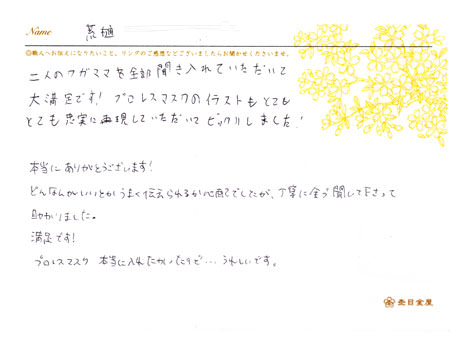 Name 荒植
◎職人へお伝えになりたいこと、リングのご感想などございましたらお聞かせくださいませ。
二人のワガママを全部聞き入れていただいて
大満足です! プロレスマスクのイラストもとても
とても忠実に再現していただいてビックリしました!
本当にありがとうございます!
どんなんがいいとかうまく伝えられるか心配でしたが、丁寧に全て聞いて下さって
助かりました。
満足です!
プロレスマスク 本当に入れたかったので…うれしいです。
杢目金屋